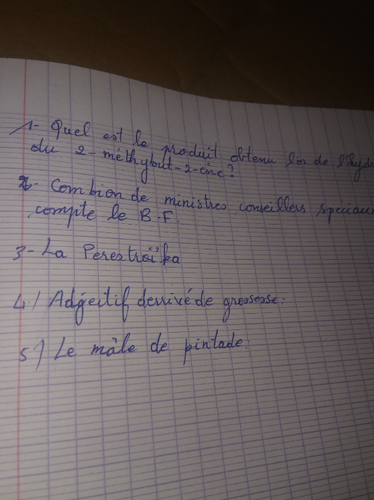 1- Quel est le produit obtenu lor de l'hyd
du 2-méthylbut-2-ène?
2- Combien de ministres conseillers speciaux
compte le B.F.
3- La Perestroïka
4/ Adjectif derrivé de grossesse.
5/ Le mâle de pintade.